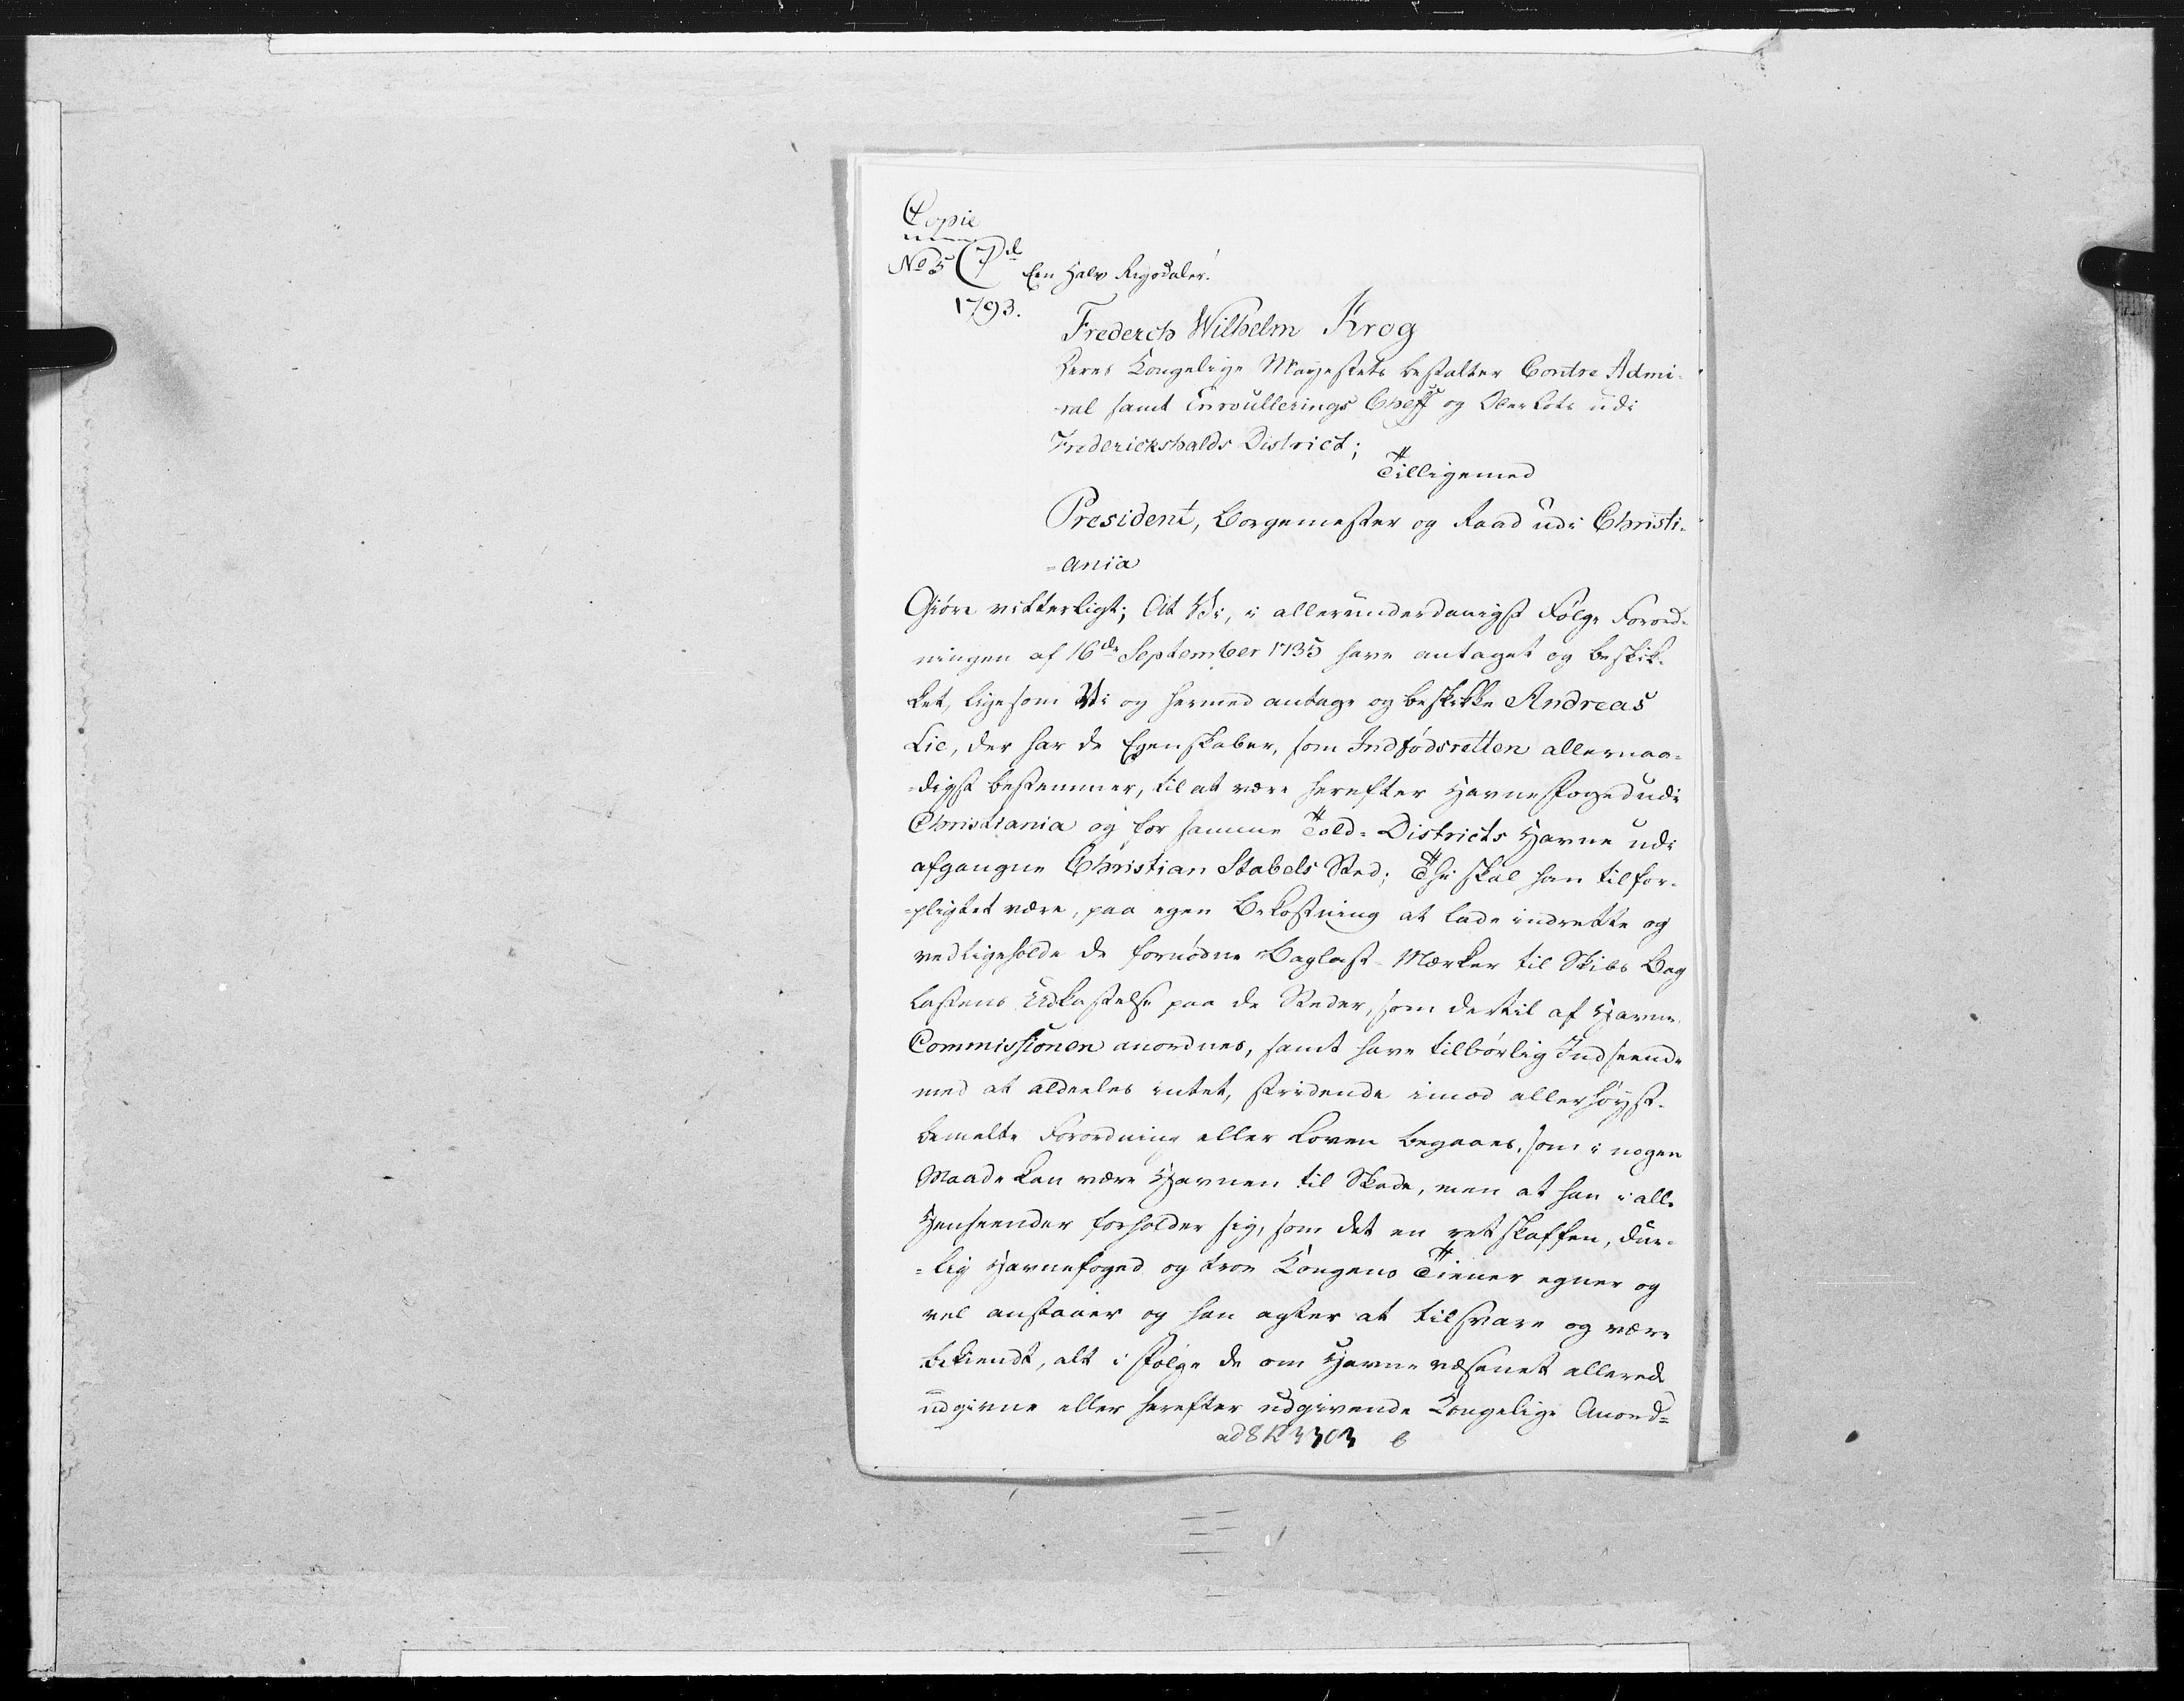 Copie
No 5
Een Halv Rigsdaler.
1793.
Frederch Wilhelm Krog
Deres Kongelige Mayestets bestalter Contre Admi-
-ral samt Enroullerings Cheff og Oberlots udi
Frederickshalds District;
Tilligemed
President, Borgemester og Raad udi Christi-
=ania
Giöre vitterligt; At Vi, i allerunderdanigst Følge Forord-
ningen af 16de September 1735 have antaget og beskik-
ket, ligesom Vi og hermed antage og beskikke Andreas
Lie, der har de Egenskaber, som Indfødsretten allernaa-
=digst bestemmer, til at være herefter Havnefoged udi
Christiania og for samme Told-Districts Havne udi
afgangne Christian Stabels Sted; Thi skal han tilfor-
=pligtet være, paa egen Bekostning at lade indrette og
vedligeholde de fornødne Baglast-Mærker til Skibs Bag
lastens Udkastelse paa de Steder, som dertil af Havne
Commissionen anordnes, samt have tilbørlig Indseende
med at aldeeles intet, stridende imod allerhøyst-
bemelte Forordning eller Loven begaaes, som i nogen
Maade kan være Havnen til Skade, men at han i alle
Henseender forholder sig, som det en retskaffen, due-
=lig Havnefoged og troe Kongens Tiener egner og
vel anstaaer og han agter at tilsvare og være
bekiendt, alt i følge de om Havne væsenet allerede
udgivne eller herefter udgivende Kongelige Anord=